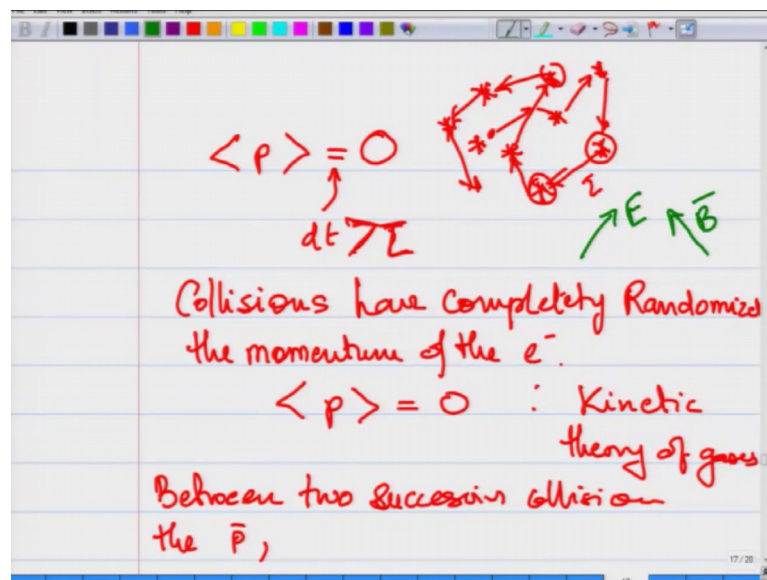 <p> = 0
dt > τ
τ
E B̄
Collisions have completely Randomized
the momentum of the e⁻.
<p> = 0 : Kinetic
theory of gases
Between two successive collision
the p̄,
17 / 20